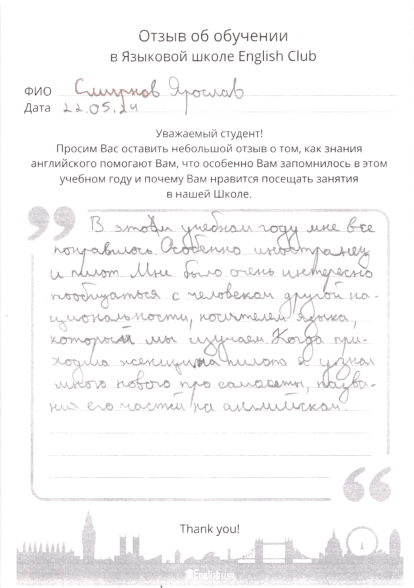 Отзыв об обучении
в Языковой школе English Club
ФИО Смирнов Ярослав
Дата 22.05.24
Уважаемый студент!
Просим Вас оставить небольшой отзыв о том, как знания
английского помогают Вам, что особенно Вам запомнилось в этом
учебном году и почему Вам нравится посещать занятия
в нашей Школе.
В этом учебном году мне все
понравилось. Особенно иностранец
и пилот. Мне было очень интересно
пообщаться с человеком другой на-
циональности, носителем языка,
который мы изучаем. Когда при-
ходила женщина пилот я узнал
много нового про самолеты, назва-
ния его частей на английском.
Thank you!